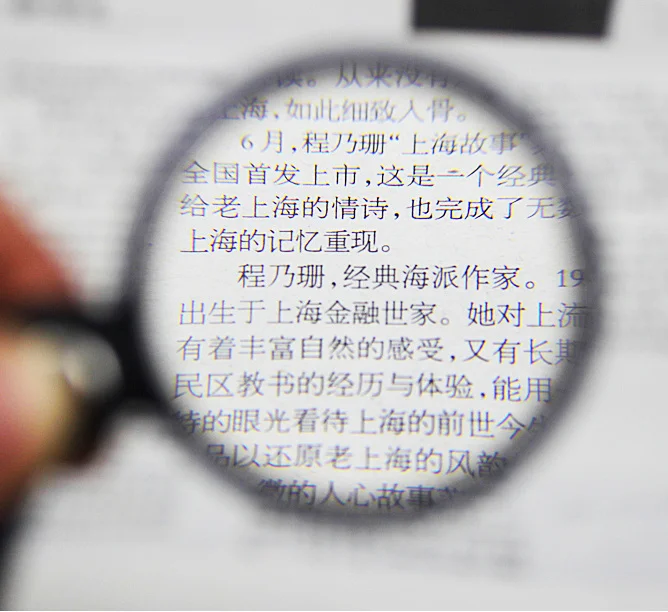 读。从来没有
上海,如此细致入骨。
6月,程乃珊“上海故事”
全国首发上市,这是一个经典
给老上海的情诗,也完成了无数
上海的记忆重现。
程乃珊,经典海派作家。19
出生于上海金融世家。她对上流
有着丰富自然的感受,又有长期
民区教书的经历与体验,能用
特的眼光看待上海的前世今生
品以还原老上海的风韵
微的人心故事